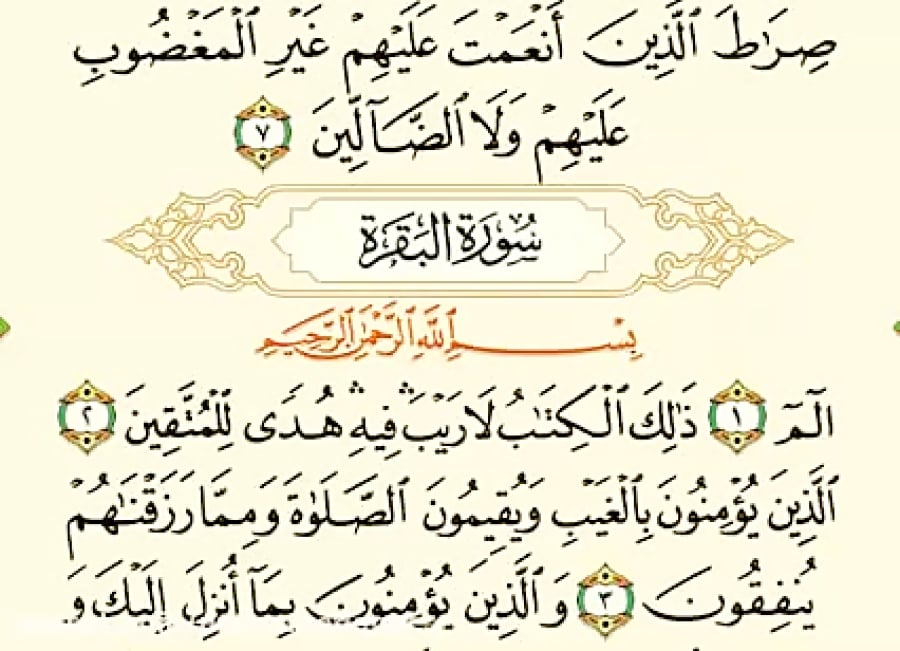 صِرَٰطَ ٱلَّذِينَ أَنْعَمْتَ عَلَيْهِمْ غَيْرِ ٱلْمَغْضُوبِ
عَلَيْهِمْ وَلَا ٱلضَّآلِّينَ ٧
سُورَةُ البَقَرَةِ
بِسْمِ ٱللَّهِ ٱلرَّحْمَٰنِ ٱلرَّحِيمِ
الٓمٓ ١ ذَٰلِكَ ٱلْكِتَٰبُ لَا رَيْبَ ۛ فِيهِ ۛ هُدًى لِّلْمُتَّقِينَ ٢
ٱلَّذِينَ يُؤْمِنُونَ بِٱلْغَيْبِ وَيُقِيمُونَ ٱلصَّلَوٰةَ وَمِمَّا رَزَقْنَٰهُمْ
يُنفِقُونَ ٣ وَٱلَّذِينَ يُؤْمِنُونَ بِمَآ أُنزِلَ إِلَيْكَ وَ